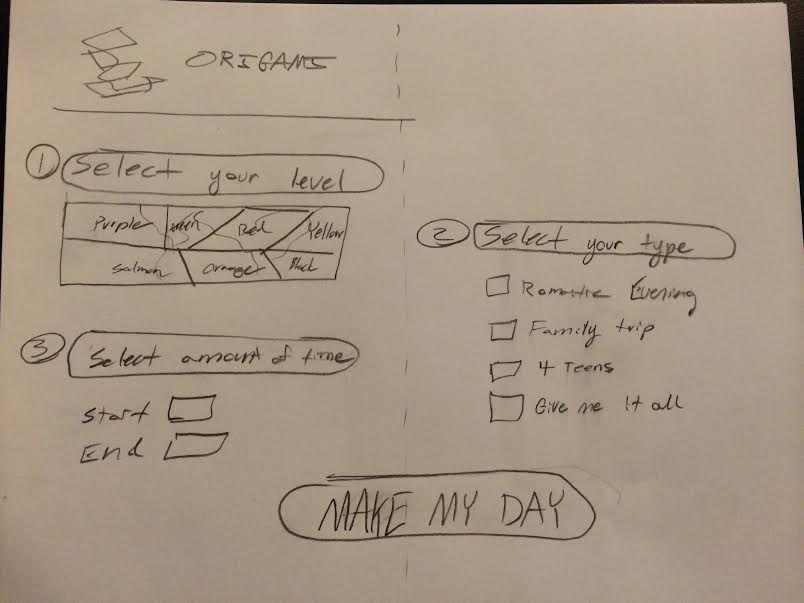 ORIGAMI
1 Select your level
Purple Green Red Yellow
Salmon Orange Black
2 Select your type
Romantic Evening
Family trip
4 Teens
Give me it all
3 Select amount of time
Start
End
MAKE MY DAY